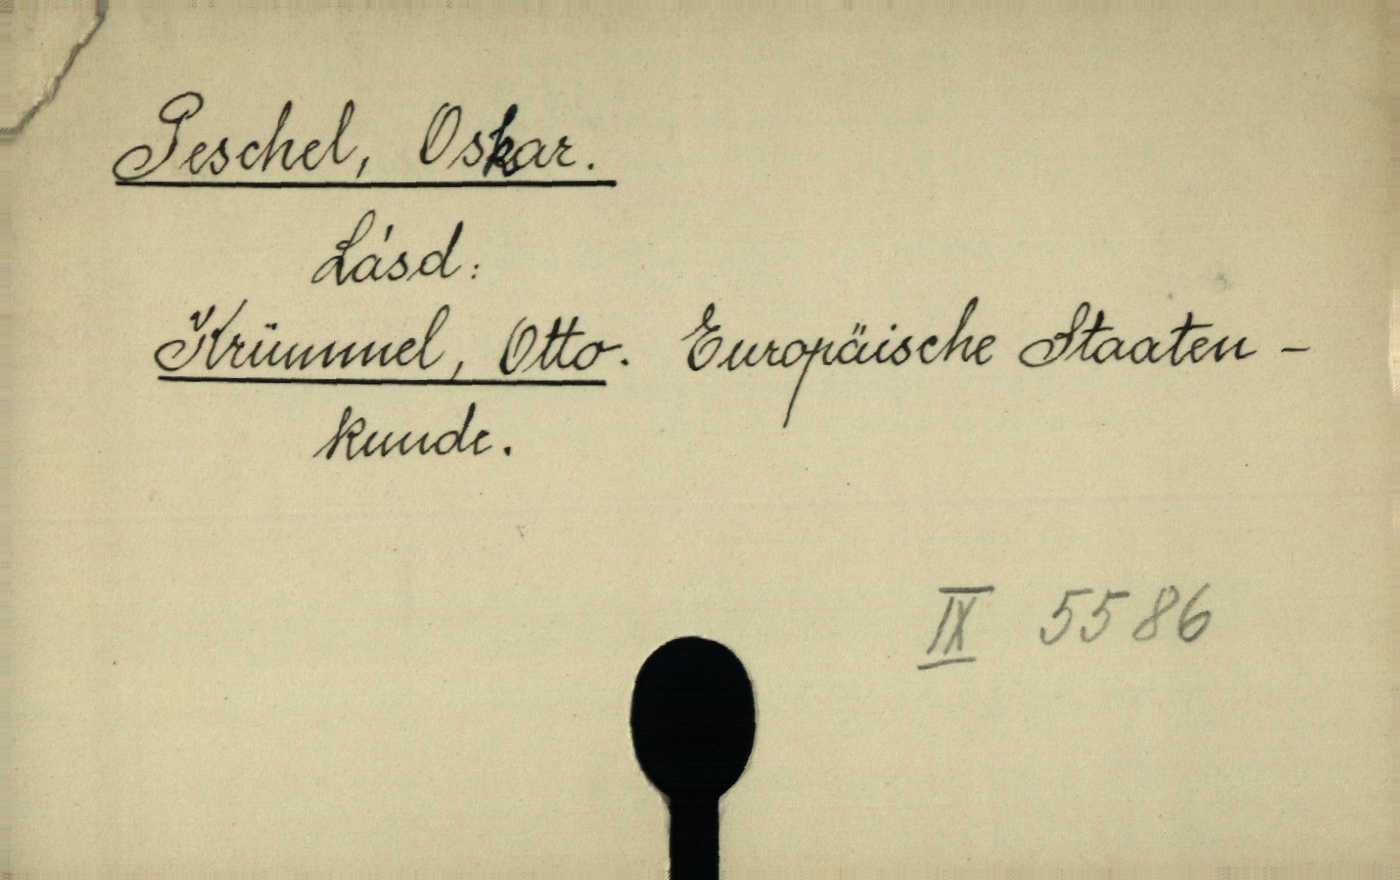 Peschel, Oskar.
Lásd:
Krümmel, Otto. Europäische Staaten -
kunde.
IX 5586